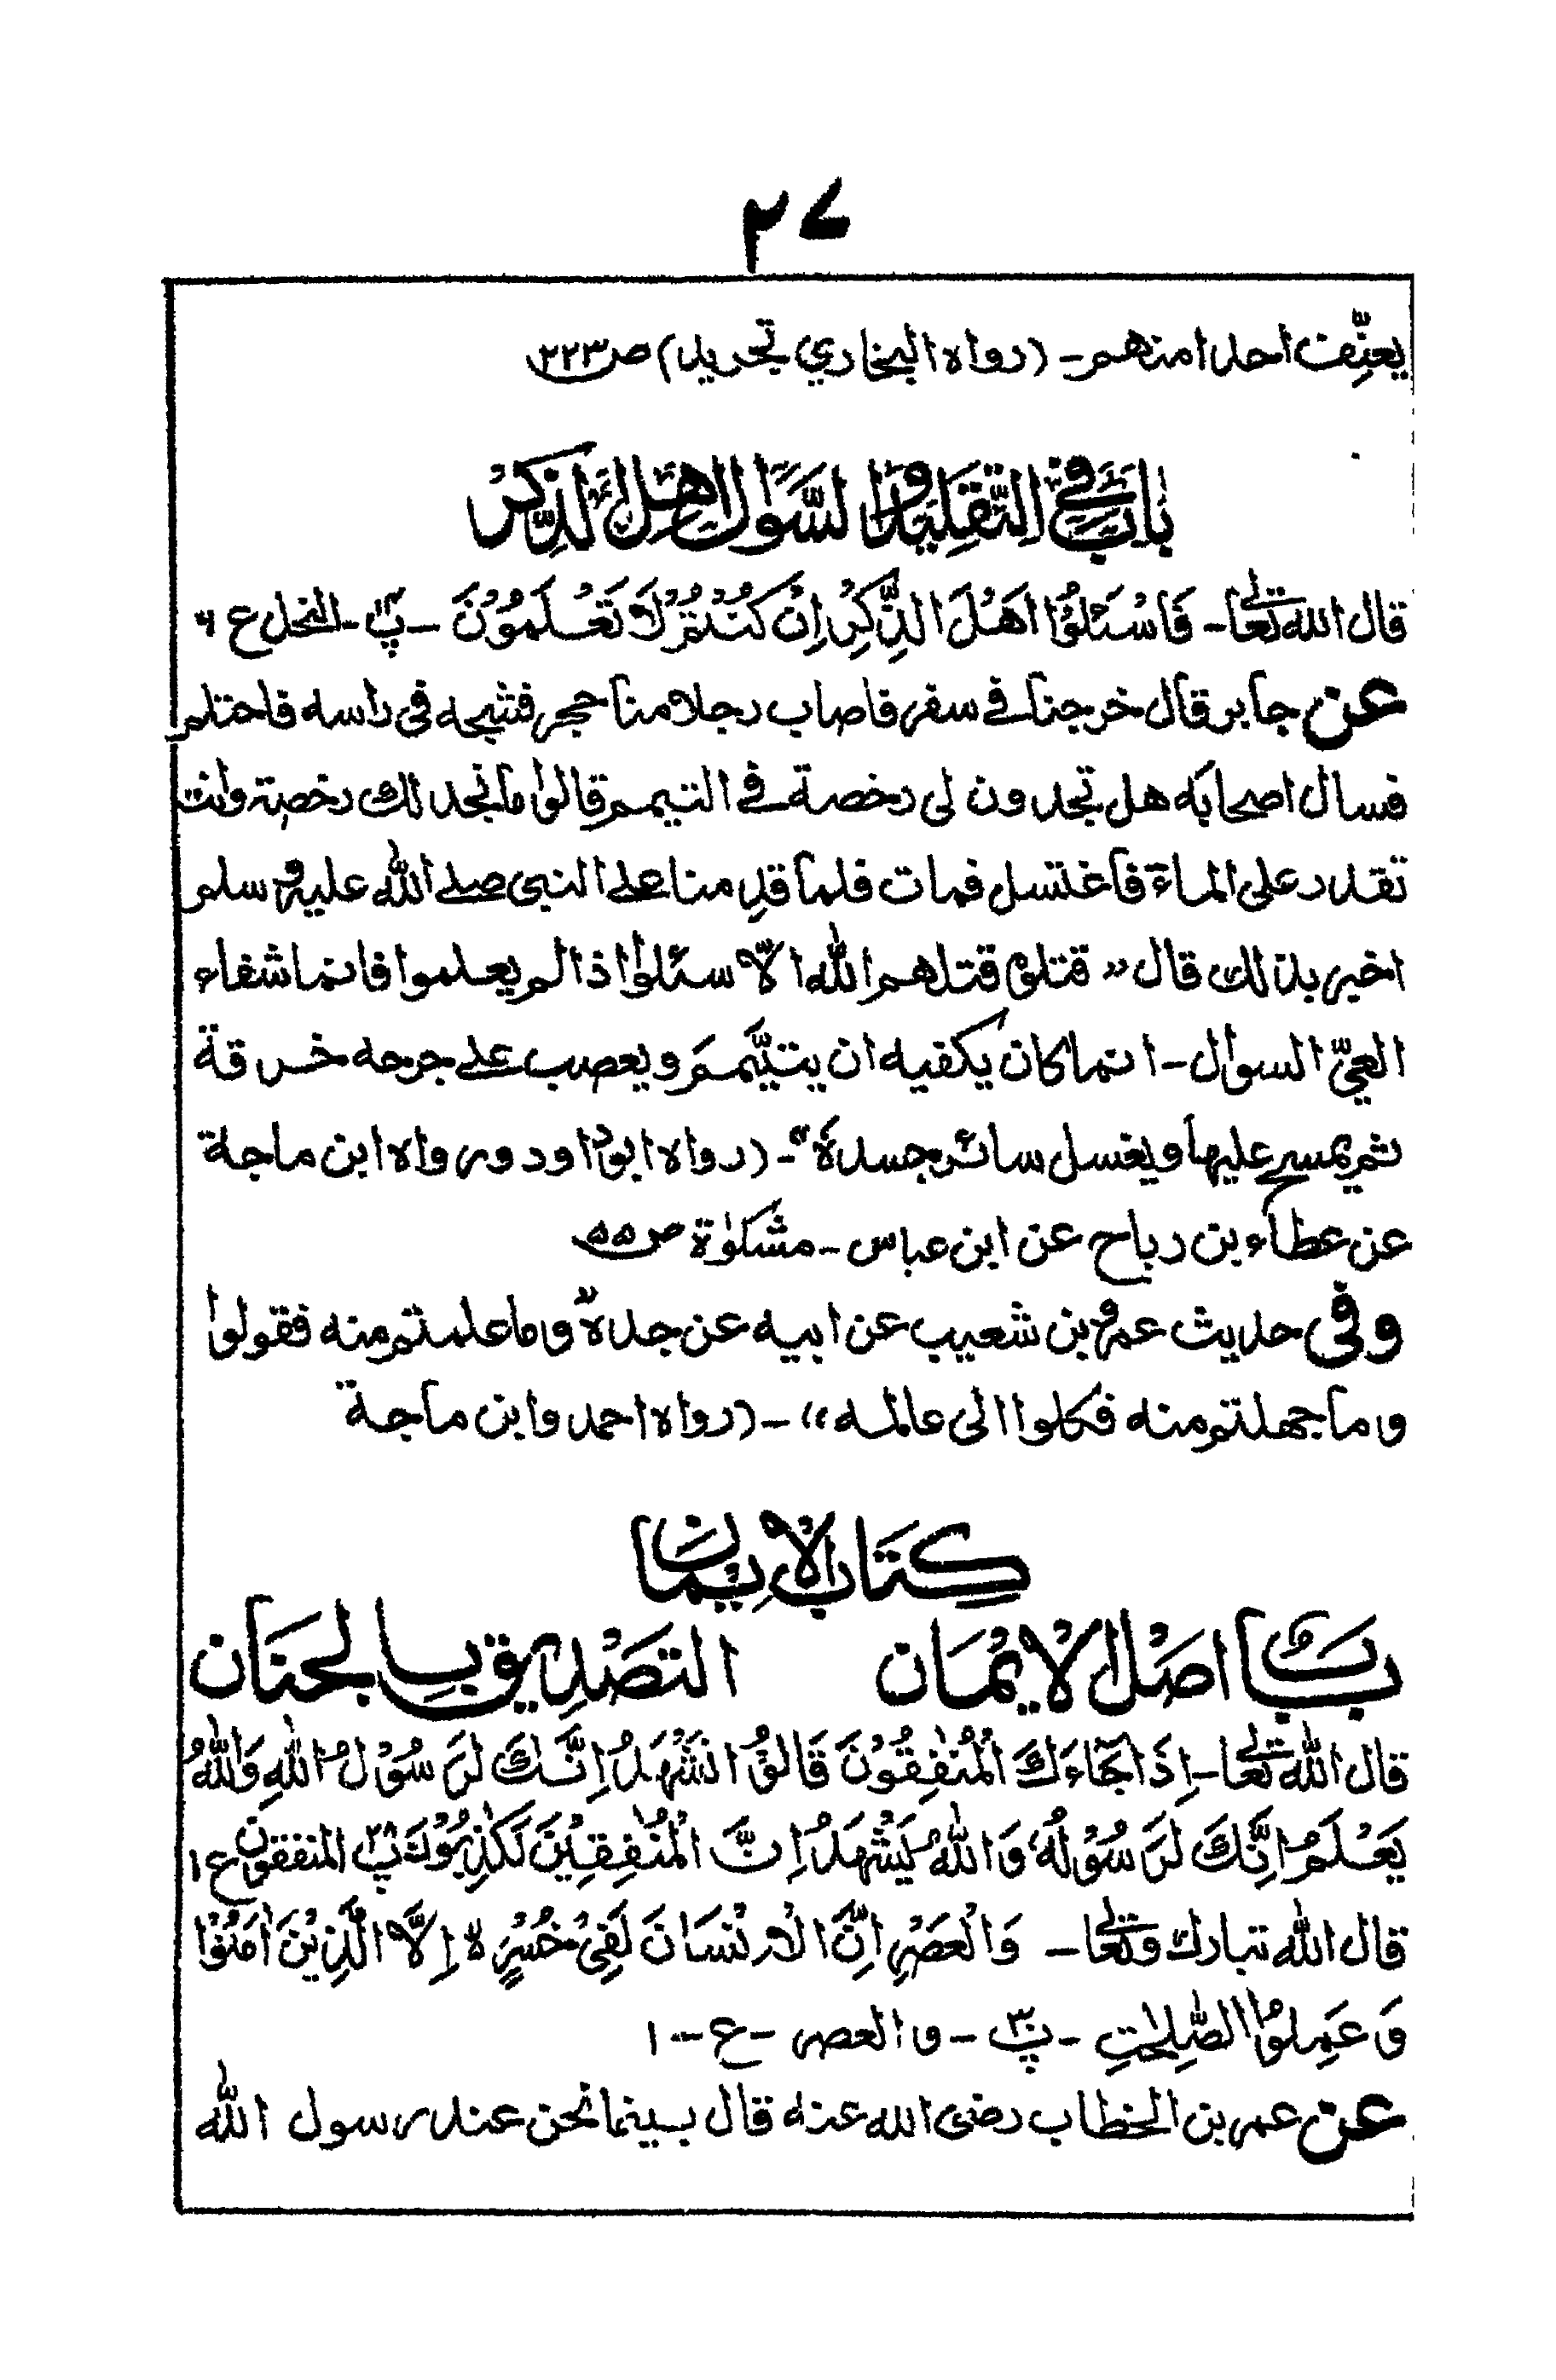 ٢٧
يعنّف احدا منهم - (رواه البخاري تجريد) ص٢٢٣
بَابٌ فِي التَّقْلِيْدِ وَالسُّوَالِ اَهْلَ الذِّكْرِ
قال الله تعالىٰ - فَاسْئَلُوْٓا اَهْلَ الذِّكْرِ اِنْ كُنْتُمْ لَا تَعْلَمُوْنَ - پ١٤ - النحل ع ٦
عن جابر قال خرجنا في سفر فاصاب رجلا منا حجر فشجه في راسه فاحتلم
فسال اصحابه هل تجدون لي رخصة في التيمم قالوا ما نجد لك رخصة وانت
تقدر على الماء فاغتسل فمات فلما قدمنا على النبي صلى الله عليه وسلم
اخبر بذالك قال “ قتلوه قتلهم الله الّا سئلوا اذا لم يعلموا فانما شفاء
العيّ السوال - انما كان يكفيه ان يتيّمم ويعصب على جرحه خرقة
ثم يمسح عليها ويغسل سائر جسده” - (رواه ابوداود ورواه ابن ماجة
عن عطاء بن رباح عن ابن عباس - مشكوٰة ص ٥٥
وفي حديث عمرو بن شعيب عن ابيه عن جده “وما علمتم منه فقولوا
وما جهلتم منه فكلوا الى عالمه” - (رواه احمد وابن ماجة
كِتَابُ الْاِيْمَانِ
بَابُ اَصْلُ الْاِيْمَان التصْدِيق بِالجنَان
قال الله تعالىٰ - اِذَا جَآءَكَ الْمُنٰفِقُوْنَ قَالُوْا نَشْهَدُ اِنَّكَ لَرَسُوْلُ اللهِ وَاللهُ
يَعْلَمُ اِنَّكَ لَرَسُوْلُهٗ وَاللهُ يَشْهَدُ اِنَّ الْمُنٰفِقِيْنَ لَكٰذِبُوْنَ پ٢٨ المنفقون ع ١
قال الله تبارك وتعالىٰ - وَالْعَصْرِ اِنَّ الْاِنْسَانَ لَفِيْ خُسْرٍ ه اِلَّا الَّذِيْنَ اٰمَنُوْا
وَعَمِلُوا الصّٰلِحٰتِ - پ٣٠ - والعصر - ع - ١
عن عمر بن الخطاب رضى الله عنه قال بينما نحن عند رسول الله